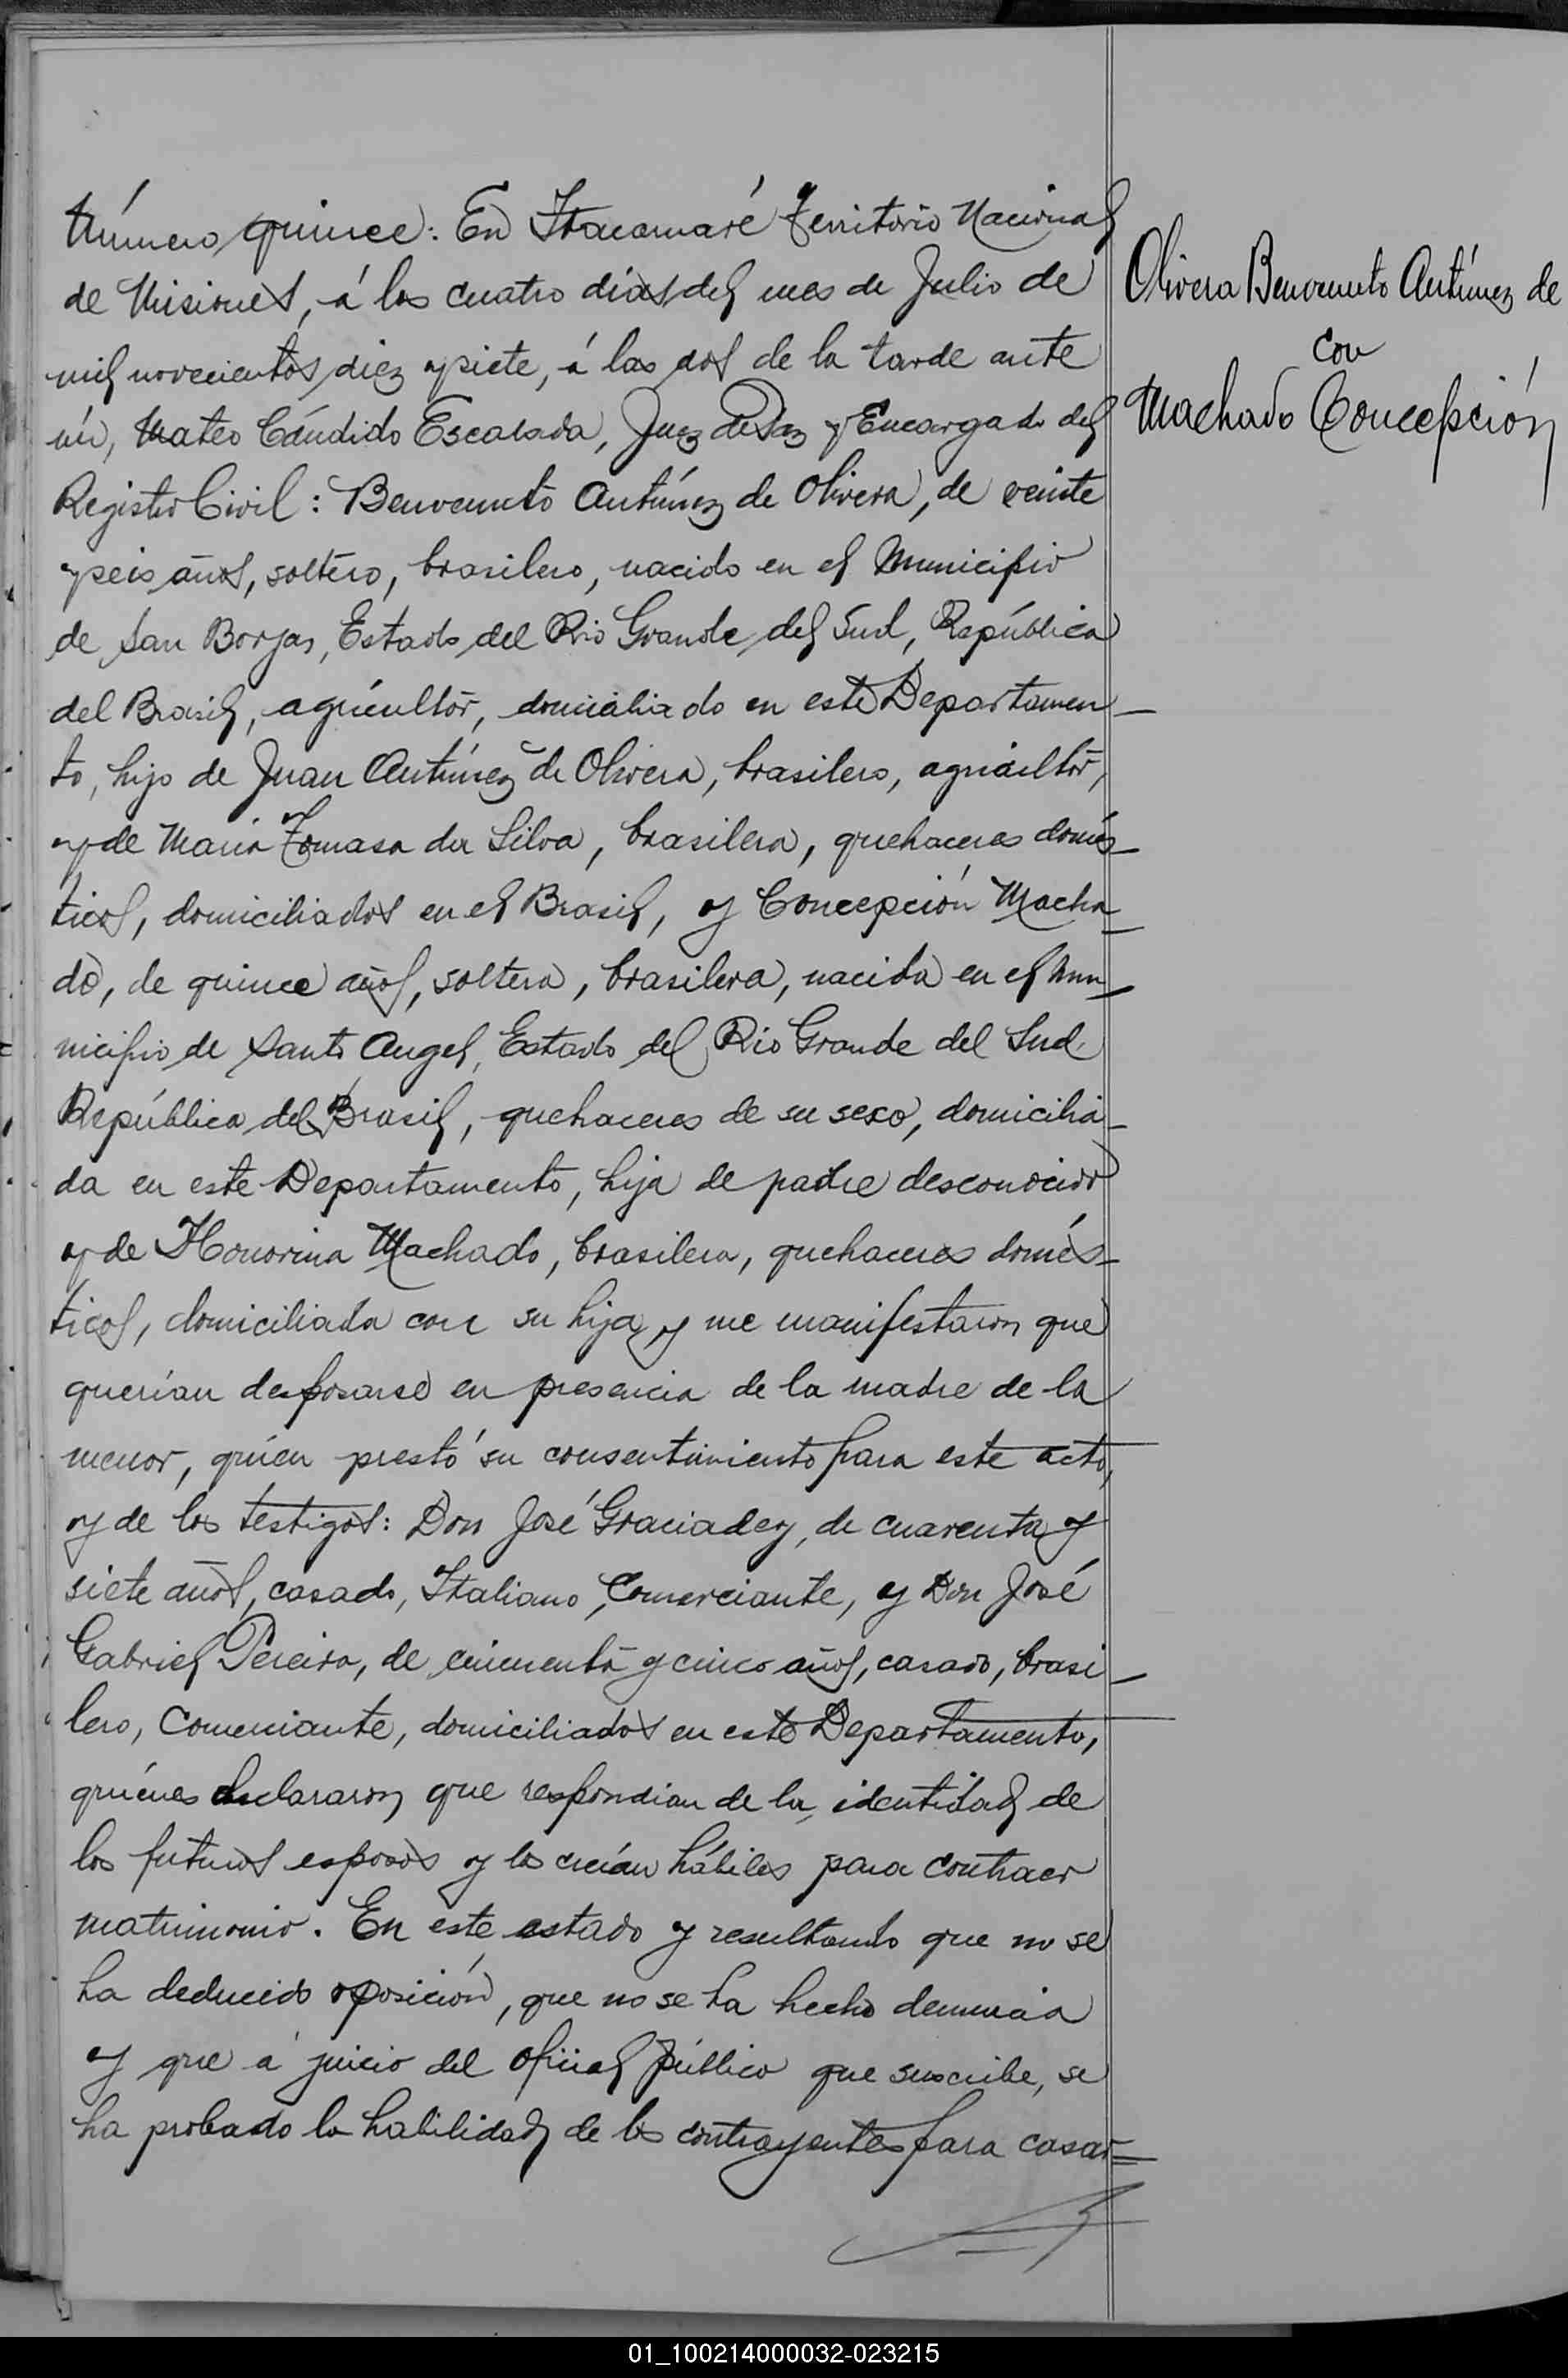 Número quince: En Itacaruaré Territorio Nacional
de Misiones, á los cuatro dias del mes de Julio de
mil novecientos diez y siete, á las dos de la tarde ante
mi, Mateo Cándido Escalada, Juez de Paz y Encargado del
Registro Civil: Benvenuto Antúnez de Olivera, de veinte
y seis años, soltero, brasilero, nacido en el Municipio
de San Borjas, Estado del Rio Grande del Sud, República
del Brasil, agricultor, domiciliado en este Departamen-
to, hijo de Juan Antúnez de Olivera, brasilero, agricultor,
y de Maria Tomasa da Silva, brasilera, quehaceres domés-
ticos, domiciliados en el Brasil, y Concepción Macha-
do, de quince años, soltera, brasilera, nacida en el Mu-
nicipio de Santo Angel, Estado del Rio Grande del Sud
República del Brasil, quehaceres de su sexo, domicilia-
da en este Departamento, hija de padre desconocido
y de Honorina Machado, brasilera, quehaceres domés-
ticos, domiciliada con su hija y me manifestaron que
querían desposarse en presencia de la madre de la
menor, quien prestó su consentimiento para este acto,
y de los testigos: Don José Graciadey, de cuarenta y
siete años, casado, Italiano, Comerciante, y Don José
Gabriel Pereira, de cincuenta y cinco años, casado, brasi-
lero, Comerciante, domiciliados en este Departamento,
quiénes declararon que respondian de la identidad de
los futuros esposos y los creían hábiles para contraer
matrimonio. En este estado y resultando que no se
ha deducido oposición, que no se ha hecho denuncia
y que á juicio del oficial público que suscribe, se
ha probado la habilidad de los contrayentes para casar=
Olivera Benvenuto Antúnez de
con
Machado Concepción
01_100214000032-023215